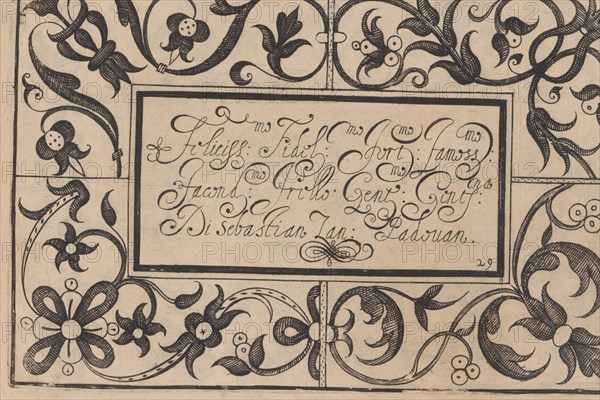 Feliciss:mo Fidel:mo Fort:mo Famoss:mo
Facond:mo Grillo Gent: Gent:
Di Sebastian Zan: Padouan.
29